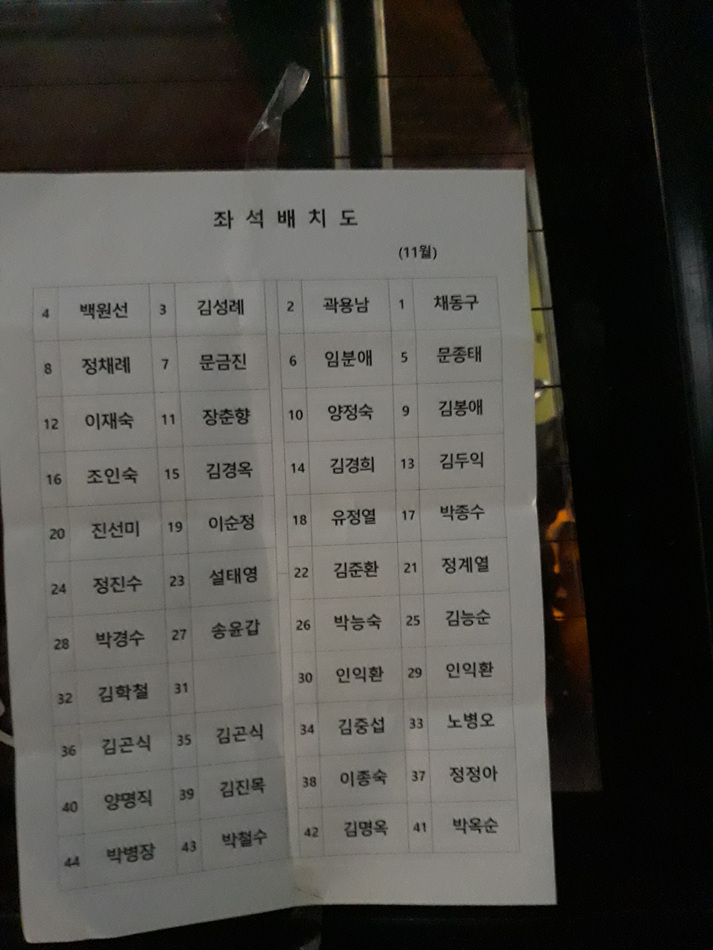 좌 석 배 치 도
(11월)
4 백원선 3 김성례 2 곽용남 1 채동구
8 정채례 7 문금진 6 임분애 5 문종태
12 이재숙 11 장춘향 10 양정숙 9 김봉애
16 조인숙 15 김경옥 14 김경희 13 김두익
20 진선미 19 이순정 18 유정열 17 박종수
24 정진수 23 설태영 22 김준환 21 정계열
28 박경수 27 송윤갑 26 박능숙 25 김능순
32 김학철 31 30 인익환 29 인익환
36 김곤식 35 김곤식 34 김중섭 33 노병오
40 양명직 39 김진목 38 이종숙 37 정정아
44 박병장 43 박철수 42 김명옥 41 박옥순